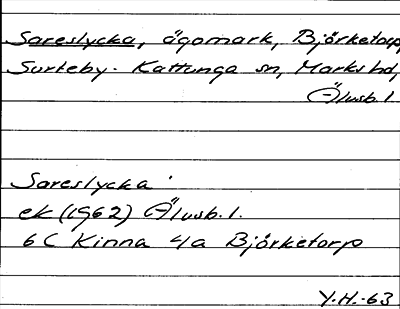 Sareslycka, ägomark, Björketorp,
Surteby-Kattunga sn, Marks hd,
Älvsb. l.
Sareslycka
ek (1962) Älvsb. l.
6 C Kinna 4a Björketorp
Y.H.-63